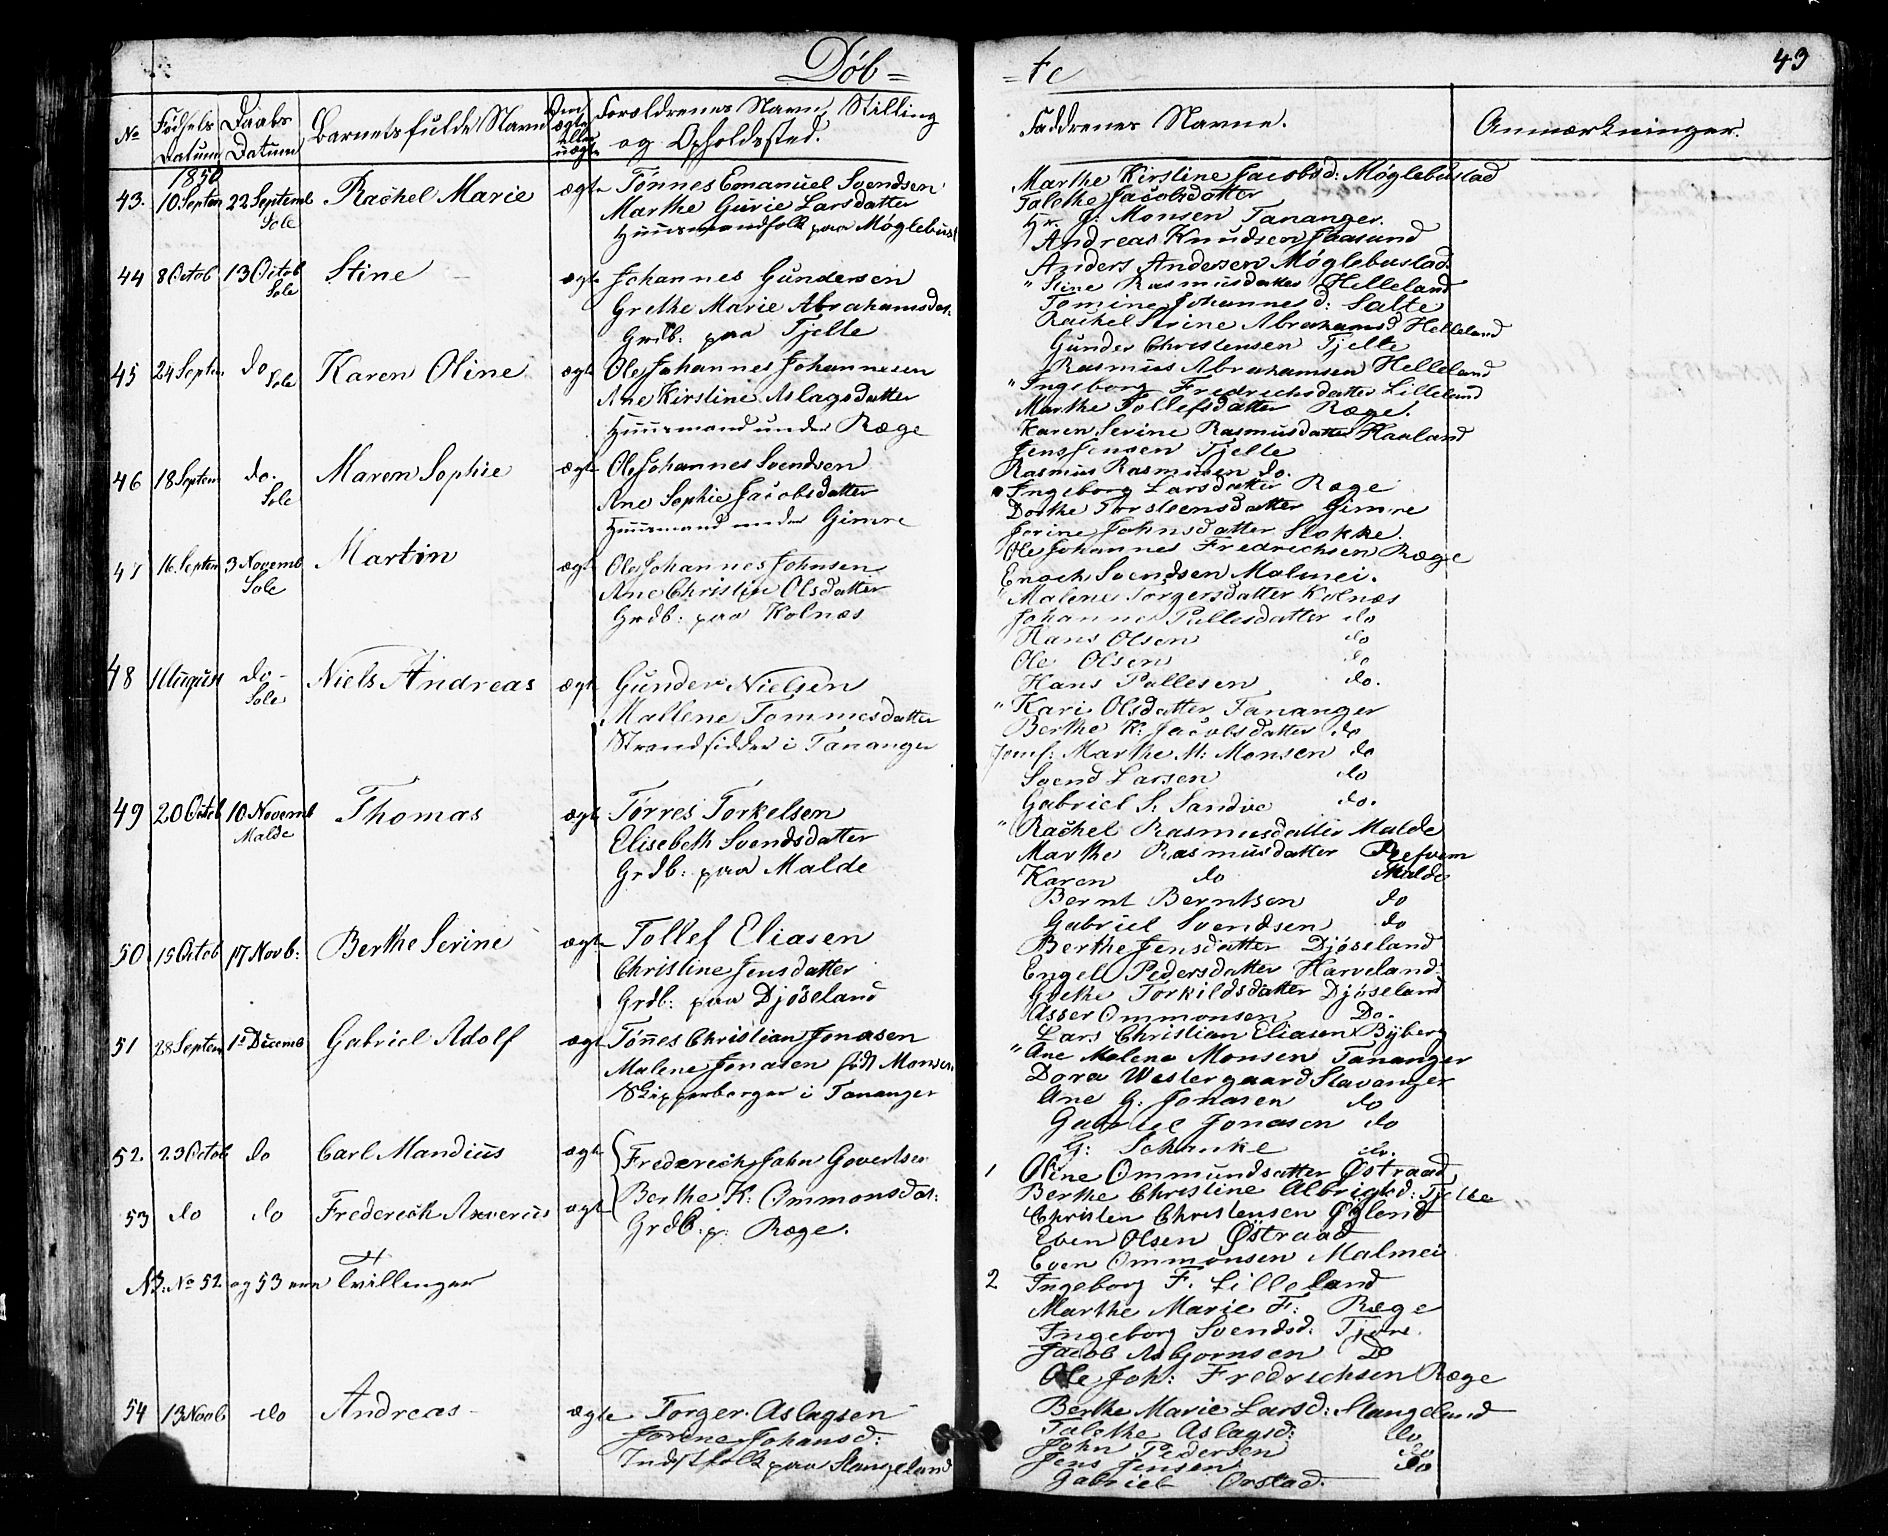 Døb=
=te
43
No
Fødsels Datum
Daabs Datum
Barnets fulde Navn
Om ægte eller uægte
Forældrenes Navn, Stilling og Opholdssted.
Faddrenes Navne.
Anmærkninger.
1850
43. 10 Septem 22 Septemb Sole Rachel Marie ægte Tønnes Emanuel Svendsen
Marthe Gurie Larsdatter
Huusmandsfolk paa Møglebust
Marthe Kirstine Jacobsd: Møglebustad
Talethe Jacobsdatter
Hr. G. Monsen Tananger.
Andreas Knudsen Haasund
Anders Andersen Møglebustad
44 8 Octob 13 Octob Sole Stine ægte Johannes Gundersen
Grethe Marie Abrahamsdat:
Grdb: paa Tjelte
" Stine Rasmusdatter Helleland
Tomine Johannesd: Salte
Rachel Serine Abrahamsd Helleland
Gunder Christensen Tjelte
Rasmus Abrahamsen Helleland
45 24 Septem do Sole Karen Oline ægte Ole Johannes Johannesen
Ane Kirstine Aslagsdatter
Huusmand under Ræge
" Ingeborg Fredrichsdatter Lilleland
Marthe Tollefsdatter Ræge.
Karen Serine Rasmusdatter Haaland
Jens Jensen Tjelte
Rasmus Rasmusen do.
46 18 Septem do. Sole Maren Sophie ægte Ole Johannes Svendsen
Ane Sophie Jacobsdatter
Huusmand under Gimre
" Ingeborg Larsdatter Ræge
Dorthe Torsteensdatter Gimre
Jorine Johnsdatter Stokke.
Ole Johannes Fredrichsen Ræge
Enoch Svendsen Malmei.
47 16 Septem 3 Novemb Sole Martin ægte Ole Johannes Johnsen
Ane Christine Olsdatter
Grdb: paa Kolnæs
" Malene Torgersdatter Kolnæs
Johanne Pallesdatter do
Hans Olsen do
Ole Olsen do
Hans Pallesen do.
48 11 August do- Sole Niels Andreas ægte Gunder Nielsen
Mallene Tommesdatter
Strandsidder i Tananger
" Kari Olsdatter Tananger
Berthe K: Jacobsdatter do
Jomf: Marthe M: Monsen do
Svend Larsen do
Gabriel S: Sandve do.
49 20 Octob 10 Novemb Malde Thomas ægte Tørres Torkelsen
Elisebeth Svendsdatter
Grdb: paa Malde
" Rachel Rasmusdatter Malde
Marthe Rasmusdatter Reefvem
Karen do Malde
Bernt Berntsen do
Gabriel Svendsen do
50. 15 Octob 17 Novb: Berthe Serine ægte Tollef Eliasen
Christine Jensdatter
Grdb: paa Djøseland
Berthe Jensdatter Djøseland
Engel Pedersdatter Harveland:
Grethe Torkildsdatter Djøseland
Asser Ommonsen Do.
Lars Christian Eliasen Byberg
51 28 Septem 1st Decemb Gabriel Adolf ægte Tønnes Christian Jonasen
Malene Jonasen født Monsen
Skipperborger i Tananger
" Ane Malene Monsen Tananger
Dora Westergaard Stavanger
Ane G: Jonasen do
Gabriel Jonasen do
G: Schanke do.
52. 23 Octob do Carl Mandius ægte Frederich Jahn Govertsen
Berthe K: Ommonsdat:
Grdb: p: Ræge.
53 do do Frederich Axverius ægte
1 Oline Ommundsatter Østraad
Berthe Christine Albrigtsd: Tjelte
Christen Christensen Øgland
Even Olsen Østraad
Even Ommonsen Malmei
NB: No 52 og 53 ere Tvillinger
2 Ingeborg F. Lilleland
Marthe Marie F: Ræge
Ingeborg Svendsd: Tjore.
Jacob Asbjørnsen Do
Ole Joh: Fredrichsen Ræge
54 13 Novb do Andreas- ægte Torger Aslagsen
Jorene Johansd:
Indstfolk paa Stangeland
Berthe Marie Larsd: Stangeland
Talethe Aslagsd: do
John Pedersen do
Jens Jensen do
Gabriel Orstad.